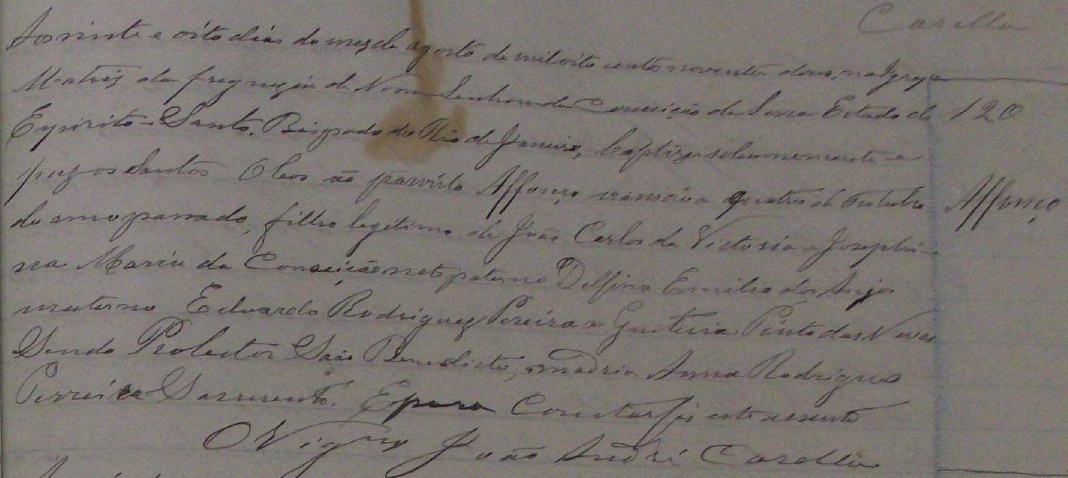 Casella
Aos vinte e oito dias do mez de agosto de mil oito cento noventa dous, na Igreja
Matriz da freguezia de Nossa Senhora da Conceição da Serra Estado do
Espirito-Santo, Bispado do Rio de Janeiro, baptizei solemnemente e
puz os Santos Oleos ao parvulo Affonço nascido a quatro de outubro
do anno passado, filho legitimo de João Carlos da Victoria e Josephi-
na Maria da Conceição neto paterno Delfina Emilia dos Anjos
materno Eduardo Rodrigues Pereira e Pinto das Neves
Sendo Protector São Benedicto, madrin Anna Rodrigues
Perreira Sarmento. E para constar fiz este assento
O Vigro João André Casella
120
Affonço